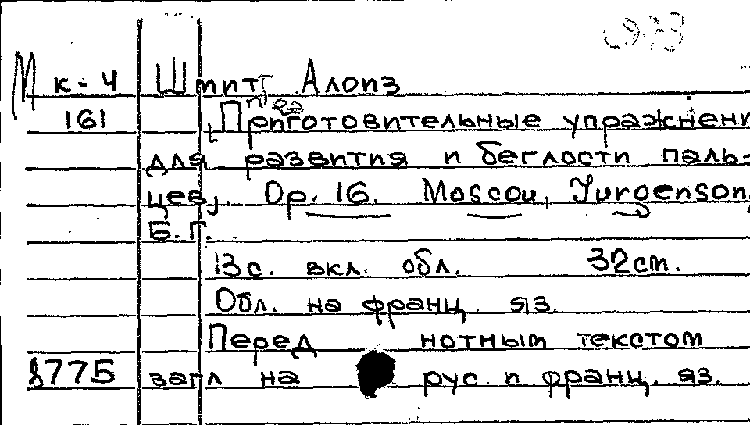 М к-4 Шмитт Алоиз
161 [Приготовительные упражнени
для развития и беглости паль-
цев]. Op. 16. Moscou, Jurgenson,
Б.Г.
13 с. вкл. обл. 32 cm.
Обл. на франц. яз.
Перед нотным текстом
8775 загл на рус. и франц. яз.